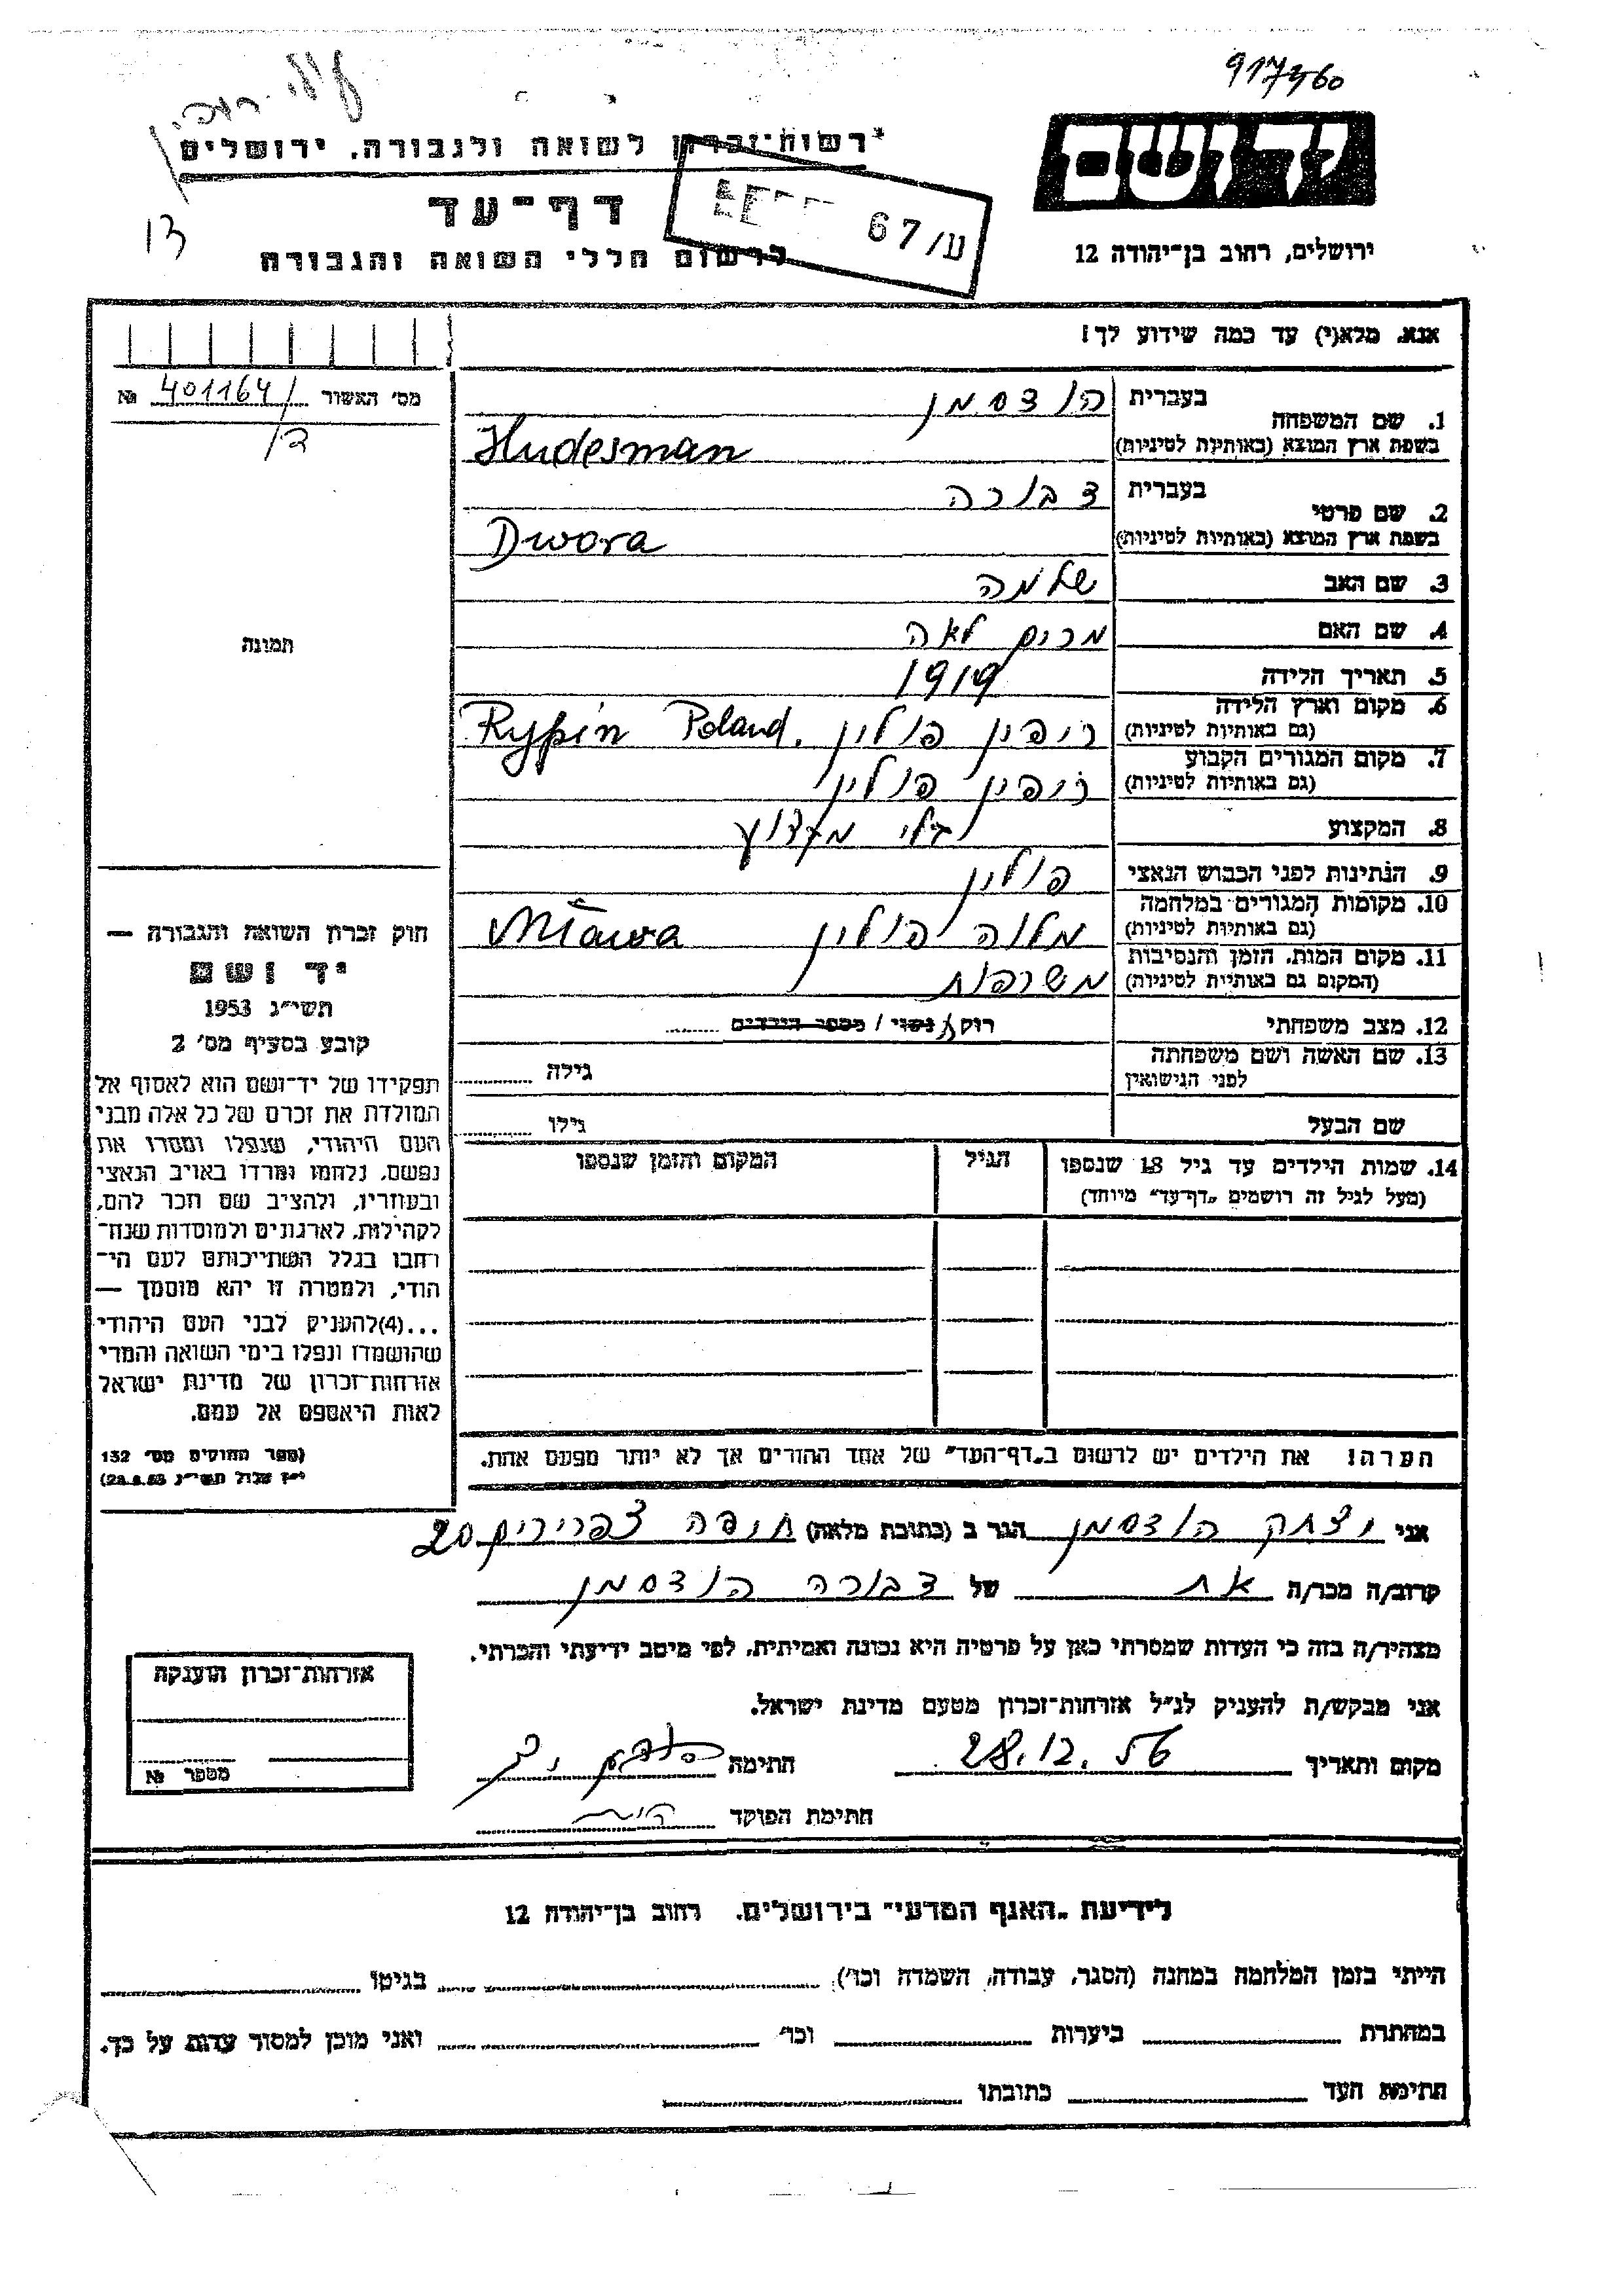 917360
יד ושם
רשות־זכרון לשואה ולגבורה. ירושלים
דף־עד
לרשום חללי השואה והגבורה
ירושלים, רחוב בן־יהודה 12
ע/67
13
אנא, מלא(י) עד כמה שידוע לך!
מס׳ האשור 401164/ №
1. שם המשפחה
בעברית הודסמן
בשפת ארץ המוצא (באותיות לטיניות) Hudesman
2. שם פרטי
בעברית דבורה
בשפת ארץ המוצא (באותיות לטיניות) Dwora
3. שם האב שלמה
4. שם האם מרים לאה
5. תאריך הלידה 1919
6. מקום וארץ הלידה
(גם באותיות לטיניות) ריפין פולין. Rypin Poland
7. מקום המגורים הקבוע
(גם באותיות לטיניות) ריפין פולין
8. המקצוע בלי מקצוע
9. הנתינות לפני הכבוש הנאצי פולין
10. מקומות המגורים במלחמה
(גם באותיות לטיניות) מלוה פולין Mława
11. מקום המות, הזמן והנסיבות
(המקום גם באותיות לטיניות) משרפות
12. מצב משפחתי רוק/ה נשוי / מספר הילדים
13. שם האשה ושם משפחתה
לפני הנישואין גילה
שם הבעל גילו
14. שמות הילדים עד גיל 18 שנספו הגיל המקום והזמן שנספו
(מעל לגיל זה רושמים „דף־עד״ מיוחד)
תמונה
חוק זכרון השואה והגבורה —
יד ושם
תשי״ג 1953
קובע בסעיף מס׳ 2
תפקידו של יד־ושם הוא לאסוף אל
המולדת את זכרם של כל אלה מבני
העם היהודי, שנפלו ומסרו את
נפשם, נלחמו ומרדו באויב הנאצי
ובעוזריו, ולהציב שם וזכר להם,
לקהילות, לארגונים ולמוסדות שנח־
רבו בגלל השתייכותם לעם הי־
הודי, ולמטרה זו יהא מוסמך —
...(4)להעניק לבני העם היהודי
שהושמדו ונפלו בימי השואה והמרי
אזרחות־זכרון של מדינת ישראל
לאות היאספם אל עמם.
(ספר החוקים מס׳ 132
י״ז אלול תשי״ג 28.8.53)
הערה! את הילדים יש לרשום ב„דף־העד״ של אחד ההורים אך לא יותר מפעם אחת.
אני יצחק הודסמן הגר ב (כתובת מלאה) חיפה צפרירים 20
קרוב/ה מכר/ה אח של דבורה הודסמן
מצהיר/ה בזה כי העדות שמסרתי כאן על פרטיה היא נכונה ואמיתית, לפי מיטב ידיעתי והכרתי.
אני מבקש/ת להעניק לנ״ל אזרחות־זכרון מטעם מדינת ישראל.
מקום ותאריך 28.12.56 חתימה
חתימת הפוקד
אזרחות־זכרון הוענקה
מספר №
לידיעת „האגף המדעי״ בירושלים. רחוב בן־יהודה 12
הייתי בזמן המלחמה במחנה (הסגר, עבודה, השמדה וכו׳) בגיטו
במחתרת ביערות וכו׳ ואני מוכן למסור עדות על כך.
חתימת העד כתובתו